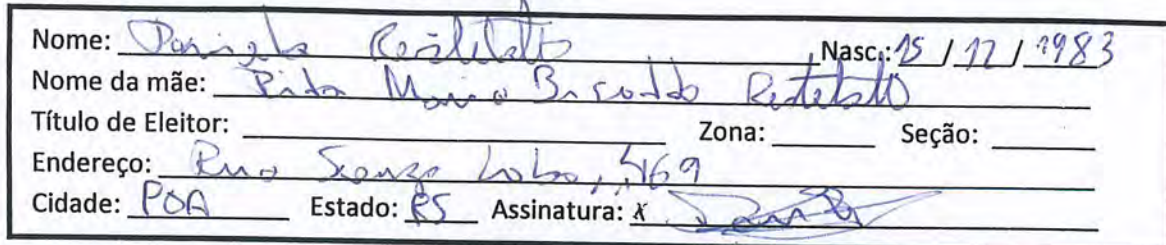 Nome: Daniela Restelatto Nasc.: 15 / 12 / 1983
Nome da mãe: Rita Maria Restelatto
Título de Eleitor: Zona: Seção:
Endereço: Rua Souza Lobo, 469
Cidade: POA Estado: RS Assinatura: X